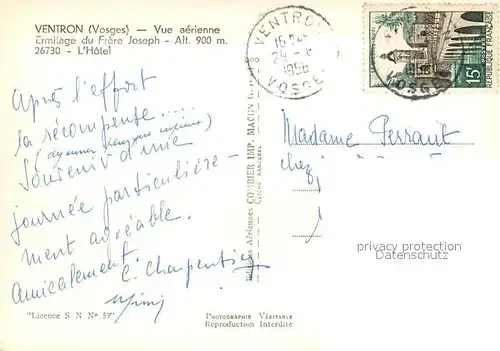 VENTRON (Vosges) — Vue aérienne
Ermitage du Frère Joseph - Alt. 900 m.
26730 - L'Hôtel
VENTRON
1956
VOSGES
15F
REPUBLIQUE FRANÇAISE
Après l'effort
la récompense....
Souvenir d'une
journée particulière-
ment agréable.
Amicalement
C. Charpentier
Mimi
Editions Aériennes COMBIER IMP. MACON
Madame Perraut
chez
privacy protection
Datenschutz
"Licence S N Nº 59"
PHOTOGRAPHIE VÉRITABLE
Reproduction Interdite